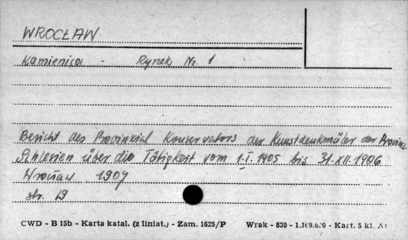 WROCŁAW
Kamienica - Rynek Nr. 1
Bericht des Provinzial Konservators der Kunstdenkmäler der Provinz
Schlesien über die Tätigkeit vom 1.I.1905 bis 31.XII.1906
Wrocław 1907
str. 19
CWD - B 15b - Karta katal. (z liniat.) - Zam. 1625/P Wrak - 830 - Kart. 5 kl. A1